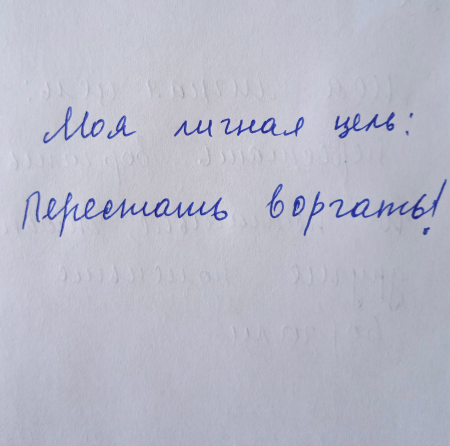 Моя личная цель:
Перестать воргать!